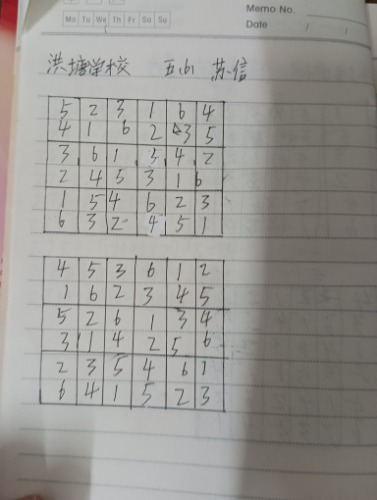 Memo No.
Mo Tu We Th Fr Sa Su
Date / /
洪塘学校 五(6) 苏信
5 2 3 1 6 4
4 1 6 2 3 5
3 6 1 5 4 2
2 4 5 3 1 6
1 5 4 6 2 3
6 3 2 4 5 1
4 5 3 6 1 2
1 6 2 3 4 5
5 2 6 1 3 4
3 1 4 2 5 6
2 3 5 4 6 1
6 4 1 5 2 3